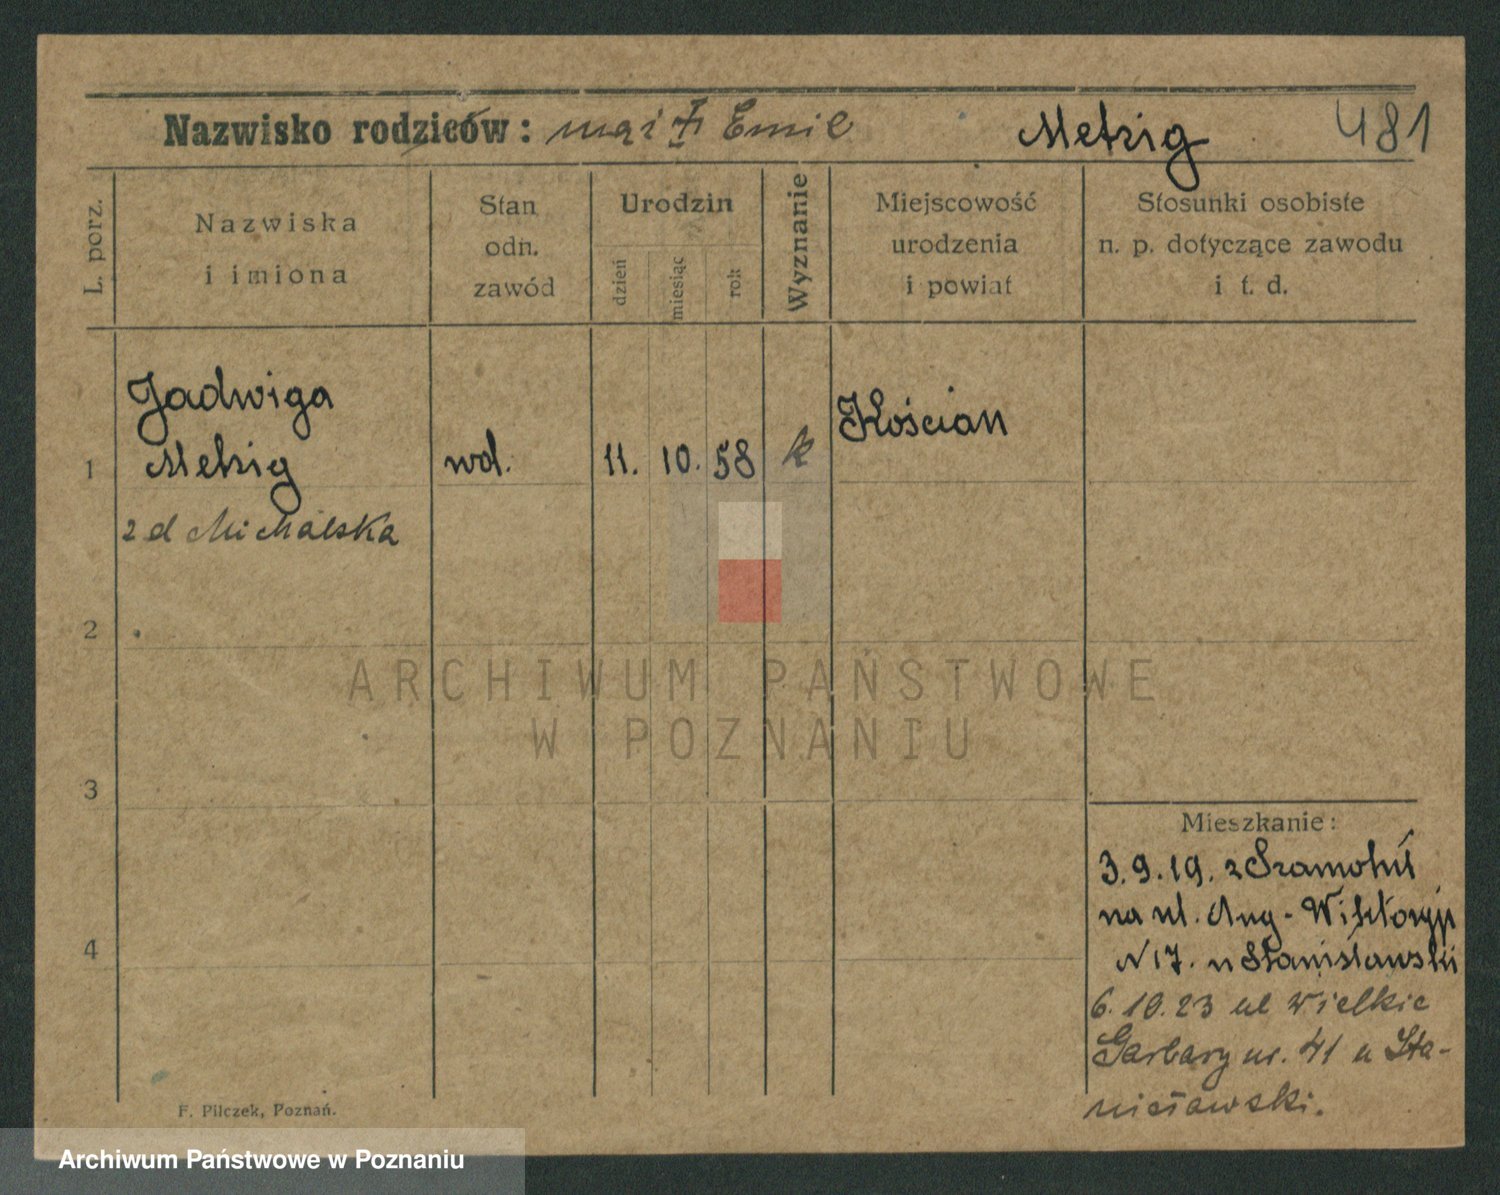 Nazwisko rodziców: mąż † Emil Metzig 481
L. porz.
Nazwiska
i imiona
Stan
odn.
zawód
Urodzin
dzień
miesiąc
rok
Wyznanie
Miejscowość
urodzenia
i powiat
Stosunki osobiste
n. p. dotyczące zawodu
i t. d.
Jadwiga
1 Metzig wd. 11. 10. 58 k Kościan
z d Michalska
2
ARCHIWUM PAŃSTWOWE
W POZNANIU
3
Mieszkanie:
3.9.19. z Szamotuł
na ul. Aug-Wiktoryi
N 17. u Stanisławski
4
6.10.23 ul Wielkie
Garbary nr. 41 u Sta-
nisławski.
F. Pilczek, Poznań.
Archiwum Państwowe w Poznaniu